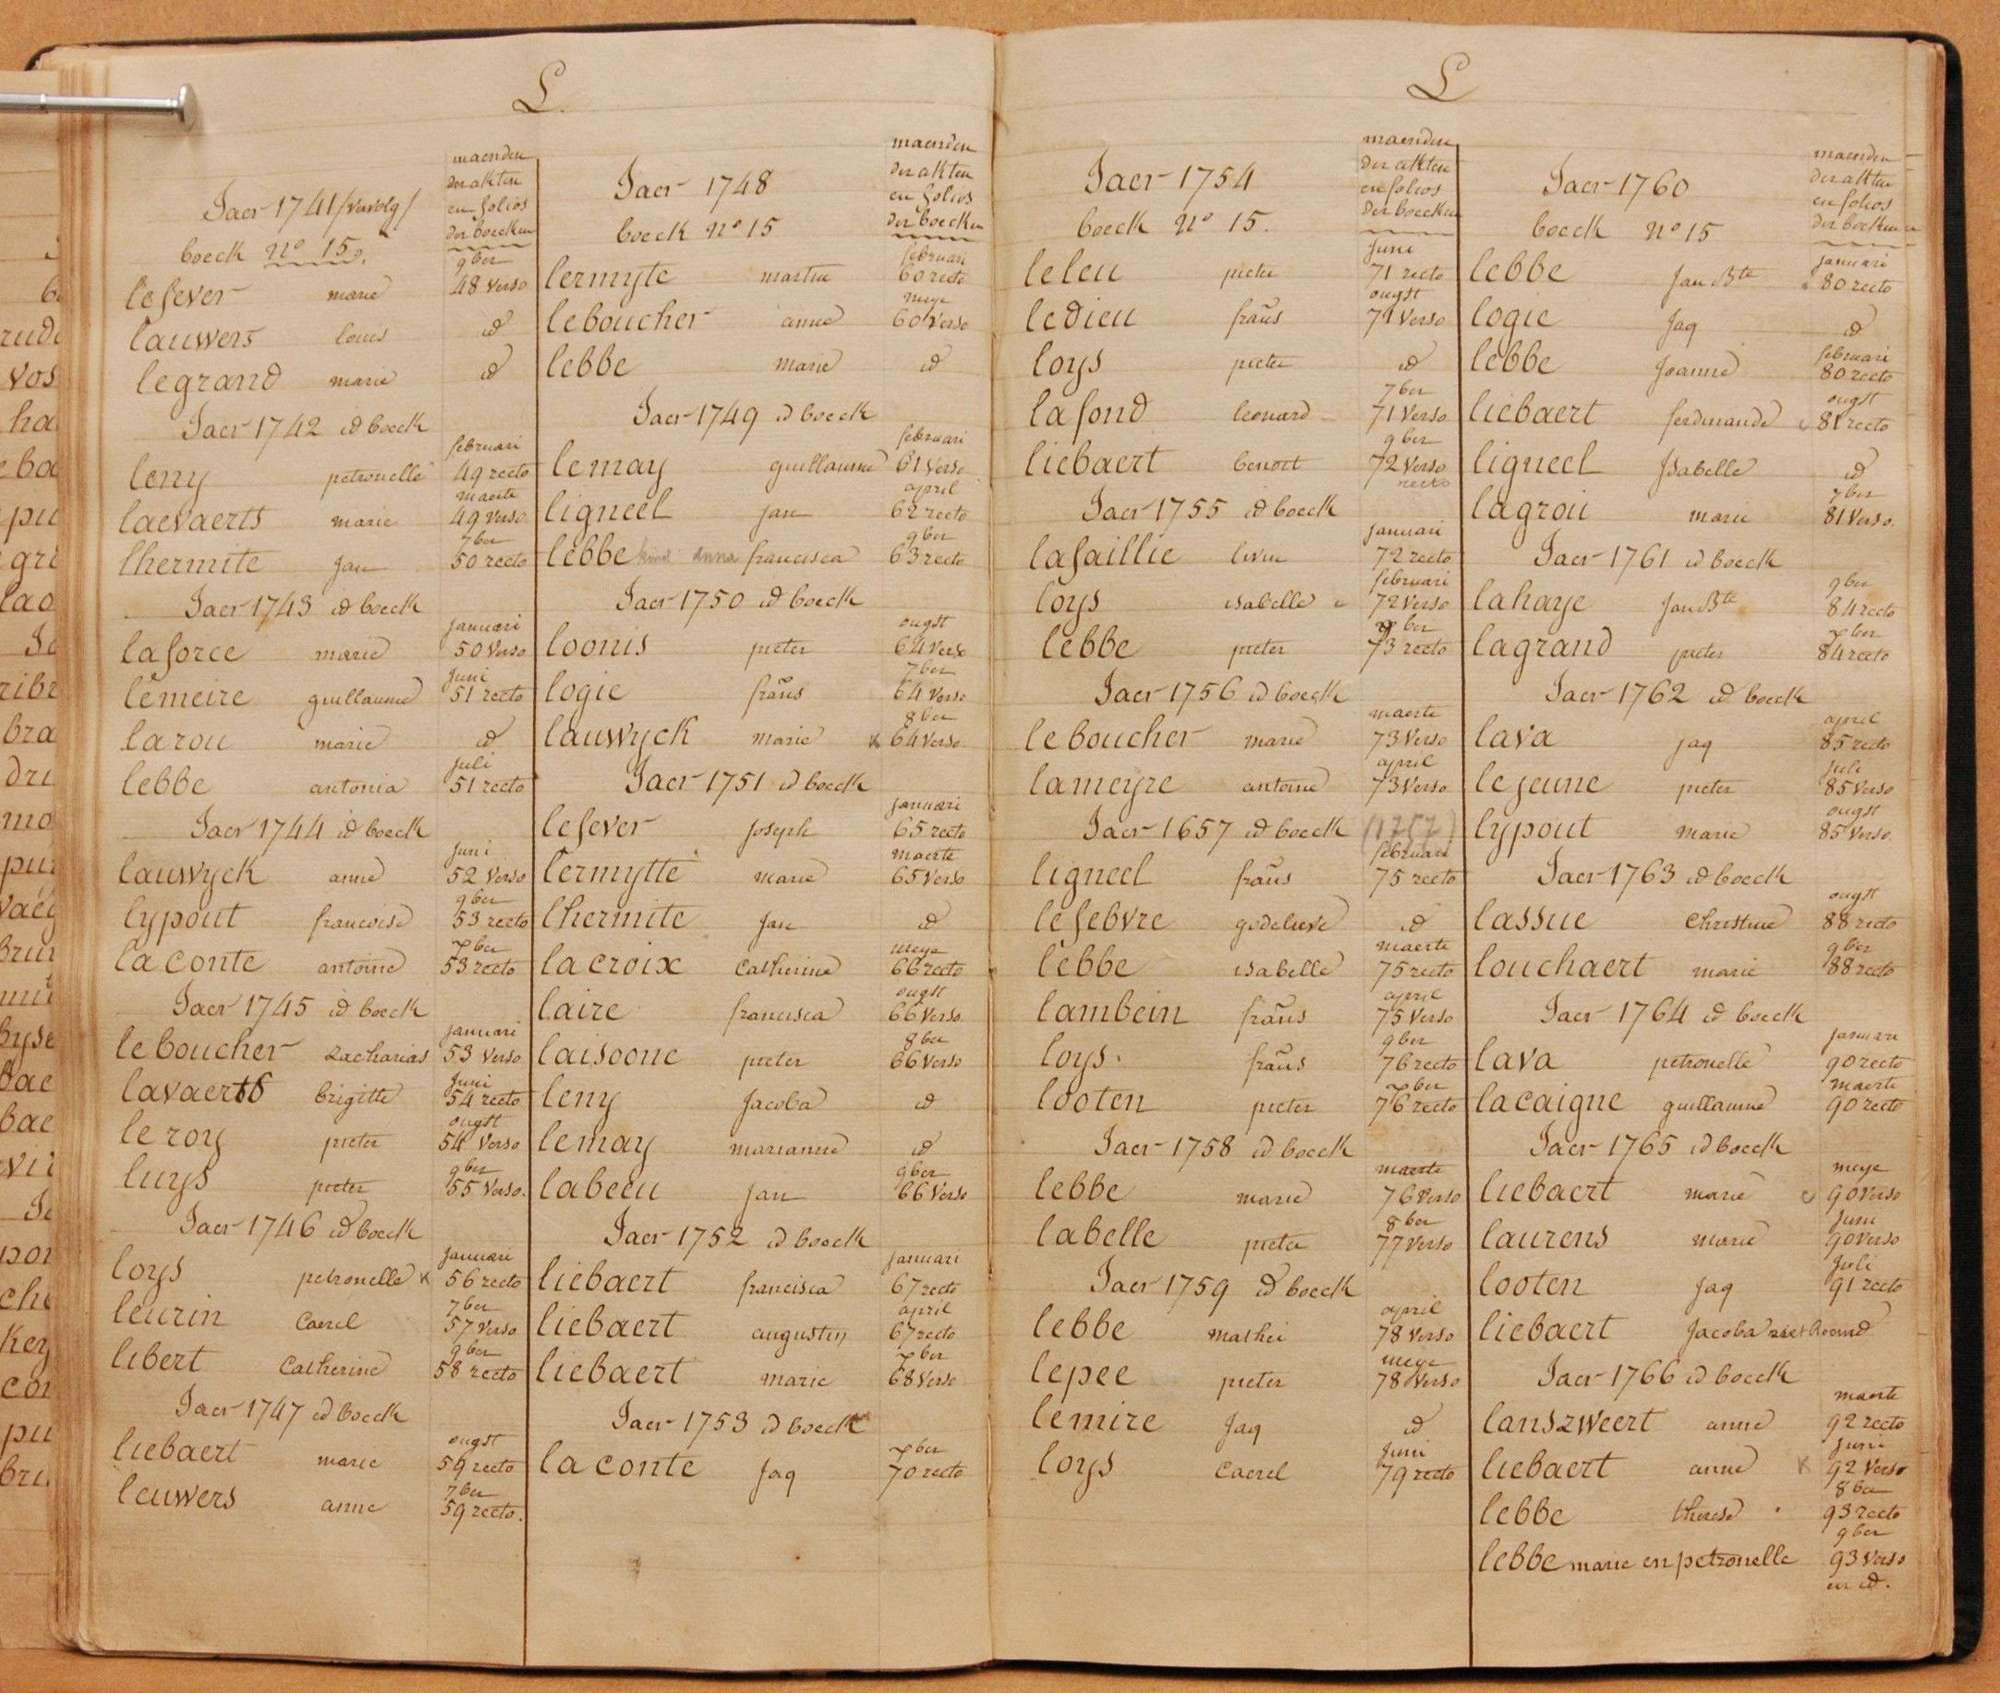 L.
Jaer 1741 /vervolg/
boeck nº 15.
maenden
der akten
en folios
der boecken
9ber
lefever marie 48 verso
lauwers louis id
legrand marie id
Jaer 1742 id boeck
februari
leny petronelle 49 recto
maerte
laevaerts marie 49 verso
7ber
lhermite jan 50 recto
Jaer 1743 id boeck
januari
laforce marie 50 verso
juni
lemeire guillaume 51 recto
larou marie id
juli
lebbe antonia 51 recto
Jaer 1744 id boeck
juni
lauwyck anne 52 verso
9ber
lypout francoise 53 recto
xber
laconte antoine 53 recto
Jaer 1745 id boeck
januari
leboucher zacharias 53 verso
juni
lavaerts brigitte 54 recto
ougst
leroy pieter 54 verso
9ber
luys pieter 55 verso.
Jaer 1746 id boeck
januari
loys petronelle x 56 recto
7ber
leurin Caerel 57 verso
9ber
libert Catherine 58 recto
Jaer 1747 id boeck
ougst
liebaert marie 59 recto
7ber
leuwers anne 59 recto.
Jaer 1748
boeck nº 15
maenden
der akten
en folios
der boecken
februari
lermyte martin 60 recto
meye
leboucher anne 60 verso
lebbe marie id
Jaer 1749 id boeck
februari
lemay guillaume 61 verso
april
ligneel jan 62 recto
9ber
lebbe kind anna francisca 63 recto
Jaer 1750 id boeck
ougst
loonis pieter 64 verso
7ber
logie frans 64 verso
8ber
lauwyck marie x 64 verso
Jaer 1751 id boeck
januari
lefever joseph 65 recto
maerte
lermytte marie 65 verso
lhermite jan id
meye
lacroix Catherine 66 recto
ougst
laire francisca 66 verso
8ber
laisoone pieter 66 verso
leny jacoba id
lemay marianne id
9ber
labeeu jan 66 verso
Jaer 1752 id boeck
januari
liebaert francisca 67 recto
april
liebaert augustin 67 recto
xber
liebaert marie 68 verso
Jaer 1753 id boeck
xber
laconte jaq 70 recto
L
Jaer 1754
boeck nº 15.
maenden
der akten
en folios
der boecken
juni
leleu pieter 71 recto
ougst
ledieu frans 71 verso
loys pieter id
7ber
lafond leonard 71 verso
9ber
liebaert benoit 72 verso
recto
Jaer 1755 id boeck
januari
lafaillie livin 72 recto
februari
loys isabelle 72 verso
xber
lebbe pieter 73 recto
Jaer 1756 id boeck
maerte
leboucher marie 73 verso
april
lameyre antoine 73 verso
Jaer 1657 id boeck (1757)
februari
ligneel frans 75 recto
lefebvre godelieve id
maerte
lebbe isabelle 75 recto
april
lambein frans 75 verso
9ber
loys. frans 76 recto
xber
looten pieter 76 recto
Jaer 1758 id boeck
maerte
lebbe marie 76 verso
8ber
labelle pieter 77 verso
Jaer 1759 id boeck
april
lebbe mathei 78 verso
meye
lepee pieter 78 verso
lemire jaq id
juni
loys Caerel 79 recto
Jaer 1760
boeck nº 15
maenden
der akten
en folios
der boecken
januari
lebbe jan Bte 80 recto
logie jaq id
februari
lebbe joanne 80 recto
ougst
liebaert ferdinande 81 recto
ligneel isabelle id
7ber
lagrou marie 81 verso.
Jaer 1761 id boeck
9ber
lahaye jan Bte 84 recto
xber
lagrand pieter 84 recto
Jaer 1762 id boeck
april
lava jaq 85 recto
juli
lejeune pieter 85 verso
ougst
lypout marie 85 verso
Jaer 1763 id boeck
ougst
lassue Christine 88 recto
9ber
louchaert marie 88 recto
Jaer 1764 id boeck
januari
lava petronelle 90 recto
maerte
lacaigne guillaume 90 recto
Jaer 1765 id boeck
meye
liebaert marie 90 verso
juni
laurens marie 90 verso
juli
looten jaq 91 recto
liebaert jacoba
Jaer 1766 id boeck
maerte
lanszweert anne 92 recto
juni
liebaert anne x 92 verso
8ber
lebbe therese 93 recto
9ber
lebbe marie en petronelle 93 verso
en id.